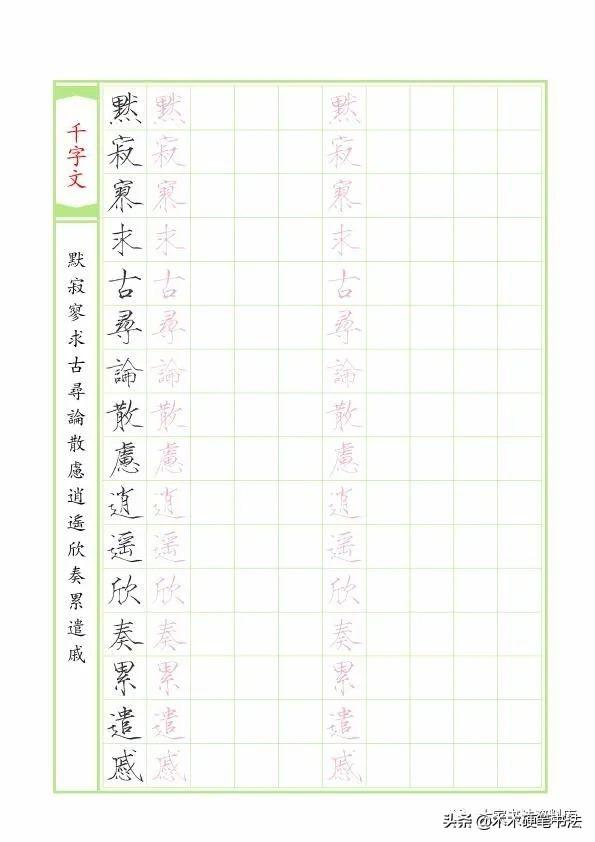 千字文
默寂寥求古尋論散慮逍遙欣奏累遣戚
默寂寥求古尋論散慮逍遙欣奏累遣戚
默寂寥求古尋論散慮逍遙欣奏累遣戚
默寂寥求古尋論散慮逍遙欣奏累遣戚
头条 @木木硬笔书法